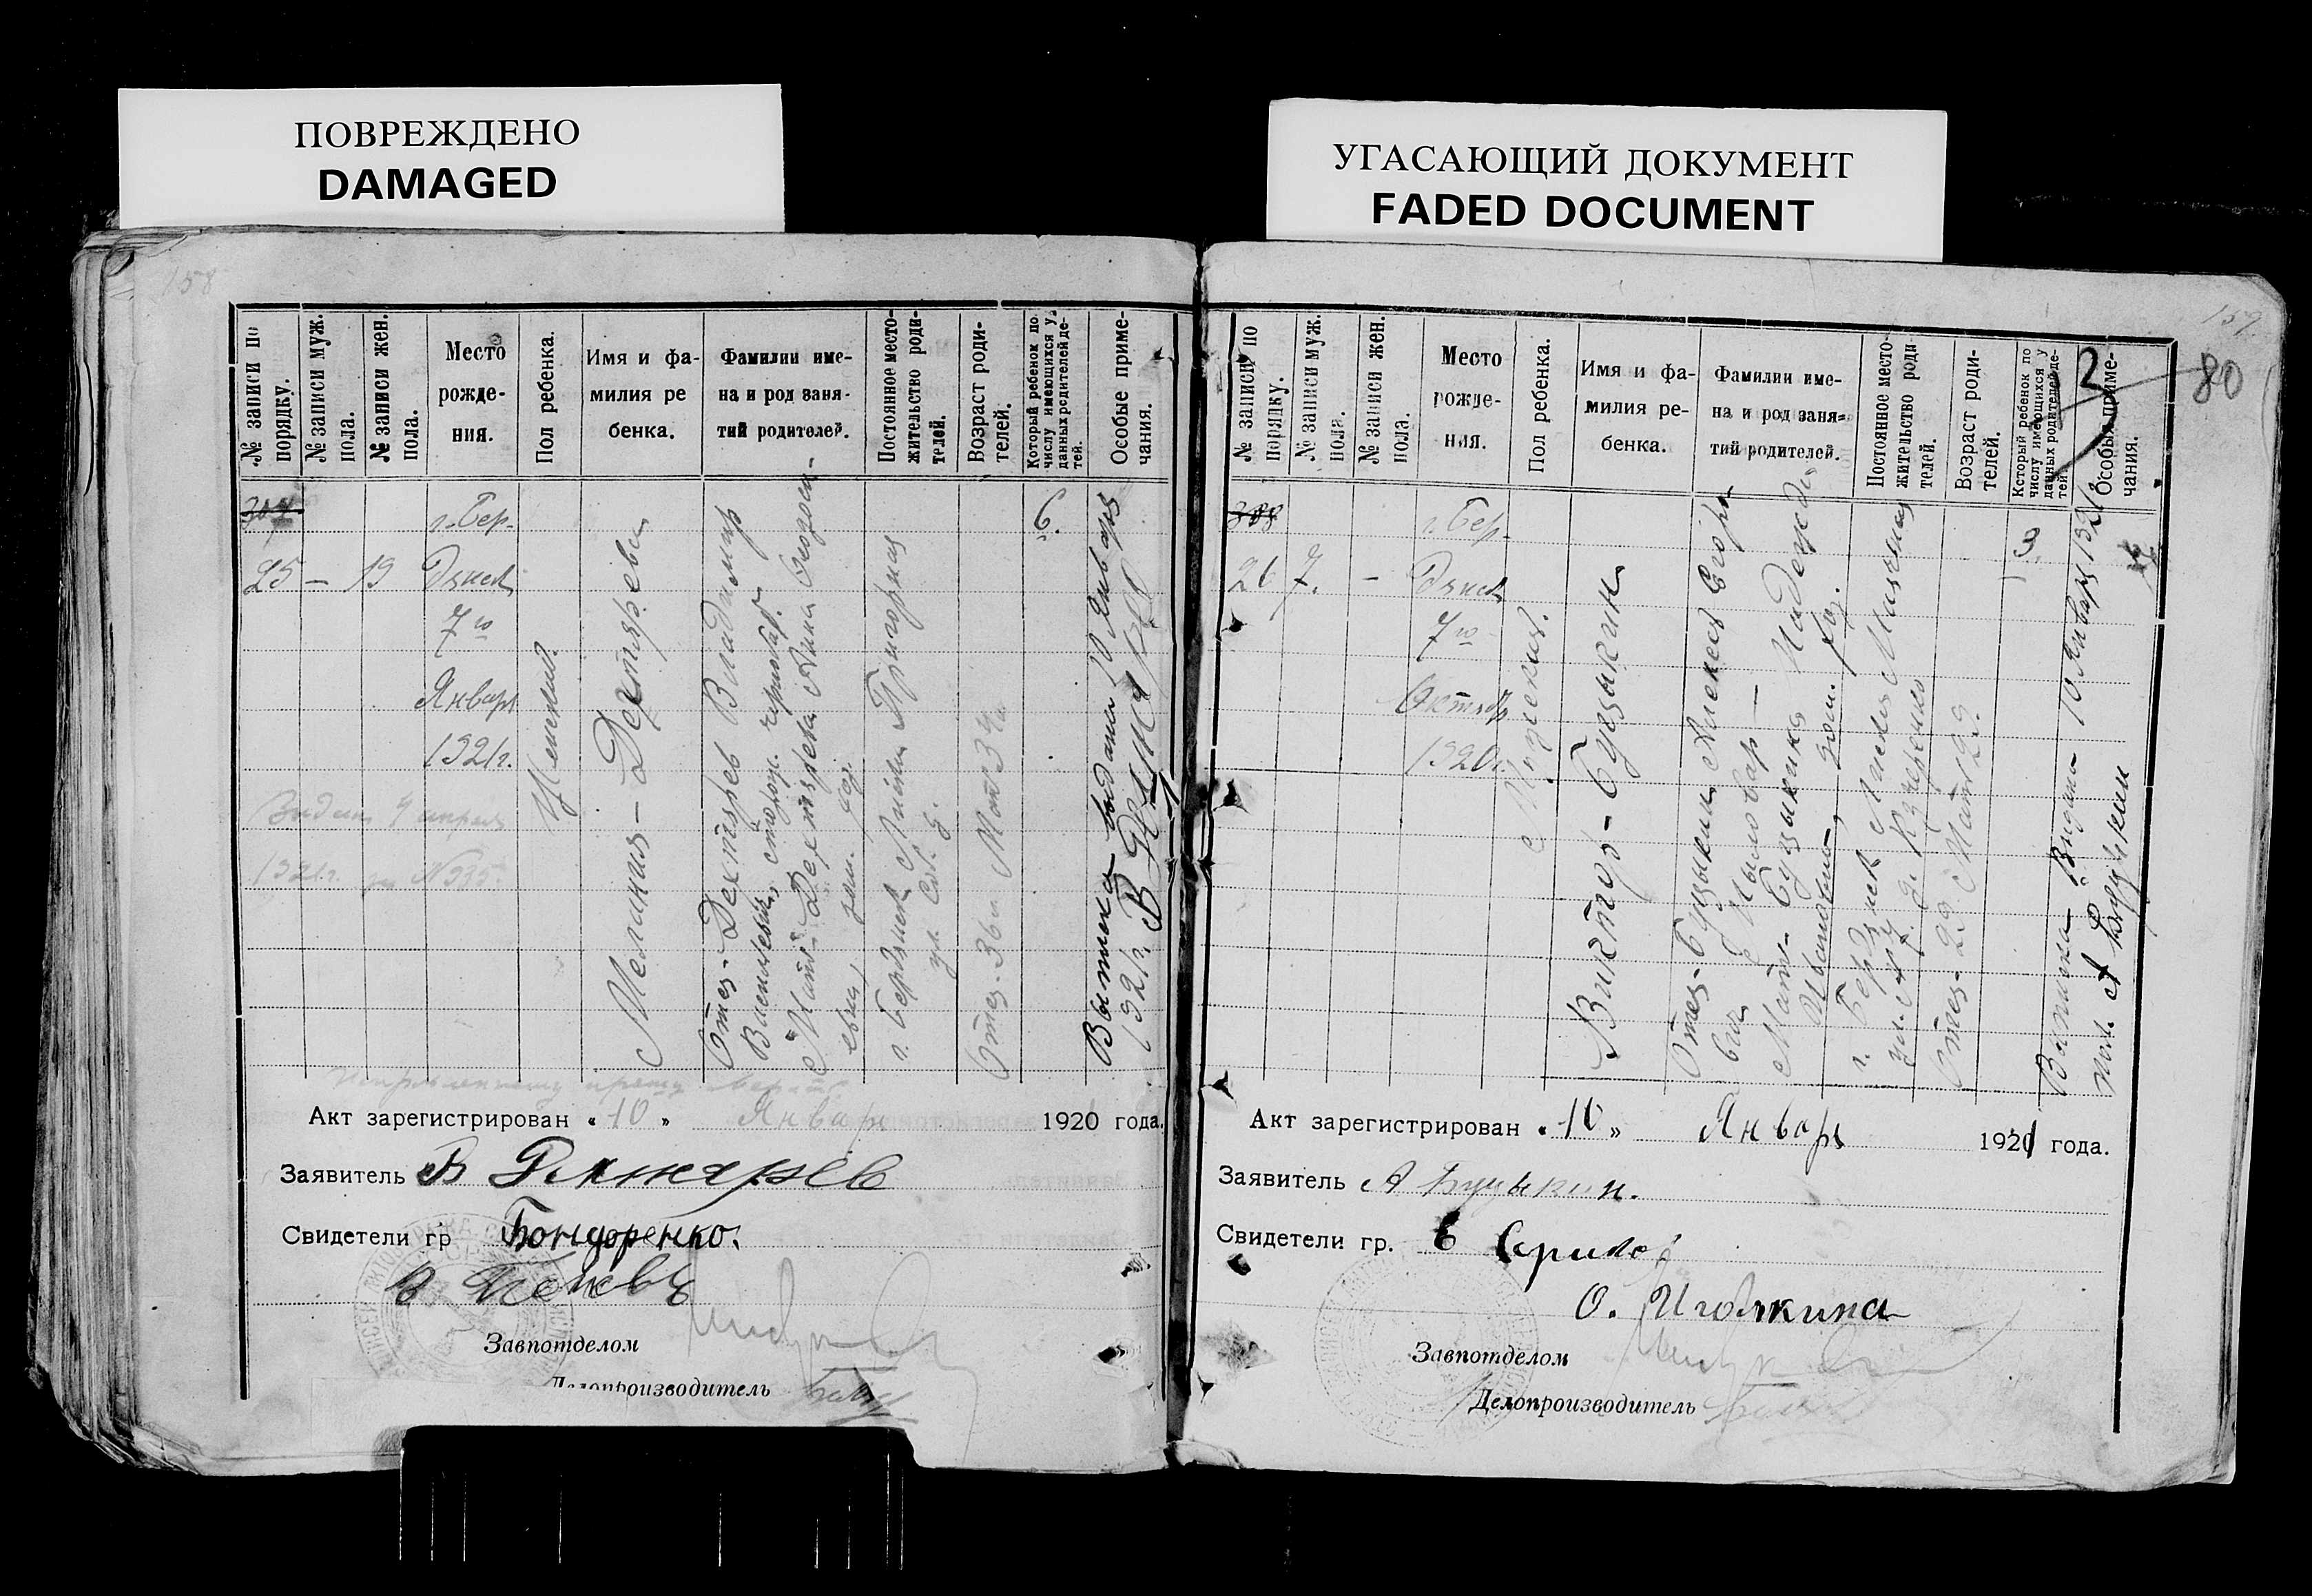 ПОВРЕЖДЕНО
DAMAGED
УГАСАЮЩИЙ ДОКУМЕНТ
FADED DOCUMENT
158
№ записи по порядку.
№ записи муж. пола.
№ записи жен. пола.
Место рождения.
Пол ребенка.
Имя и фамилия ребенка.
Фамилии имена и род занятий родителей.
Постоянное местожительство родителей.
Возраст родителей.
Который ребенок по числу имеющихся у данных родителей детей.
Особые примечания.
307
25 — 19
г. Бер-
дянск
7го
Январ
1921г.
Женский.
Мелания — Дехтярева
Отец — Дехтярев Владимир
Васильевич, сторож
Мать — Дехтярева Анна Федоси-
евна, дом. хоз.
г. Бердянск Лиски Пригорная
ул. соб. д.
Отец 36 л Мать 34 л.
6.
Выписка выдана 10 Января
1921г.
Выдан 4 апреля
1921г. за № 935.
Акт зарегистрирован „10" Январ 1920 года.
Заявитель В Дехтярев
Свидетели гр Бондоренко.
Завпотделом
Делопроизводитель
159.
80
№ записи по порядку.
№ записи муж. пола.
№ записи жен. пола.
Место рождения.
Пол ребенка.
Имя и фамилия ребенка.
Фамилии имена и род занятий родителей.
Постоянное местожительство родителей.
Возраст родителей.
Который ребенок по числу имеющихся у данных родителей детей.
Особые примечания.
308
26 7. —
г. Бер-
дянск
7го
Октябр
1920г.
Мужский.
Виктор — Буцыкин
Отец — Буцыкин Алексей Егоро-
вич, мыловар —
Мать — Буцыкина Надежда
Ивановна, дом. хоз.
г. Бердянск Лиски Мазина
Отец — 29 Мать 29.
3.
Выписка Выдана 10 Января 1921г
пол. А Буцыкин
Акт зарегистрирован „10" Январ 1921 года.
Заявитель А Буцыкин.
Свидетели гр. Е
О. Иголкина
Завпотделом
Делопроизводитель